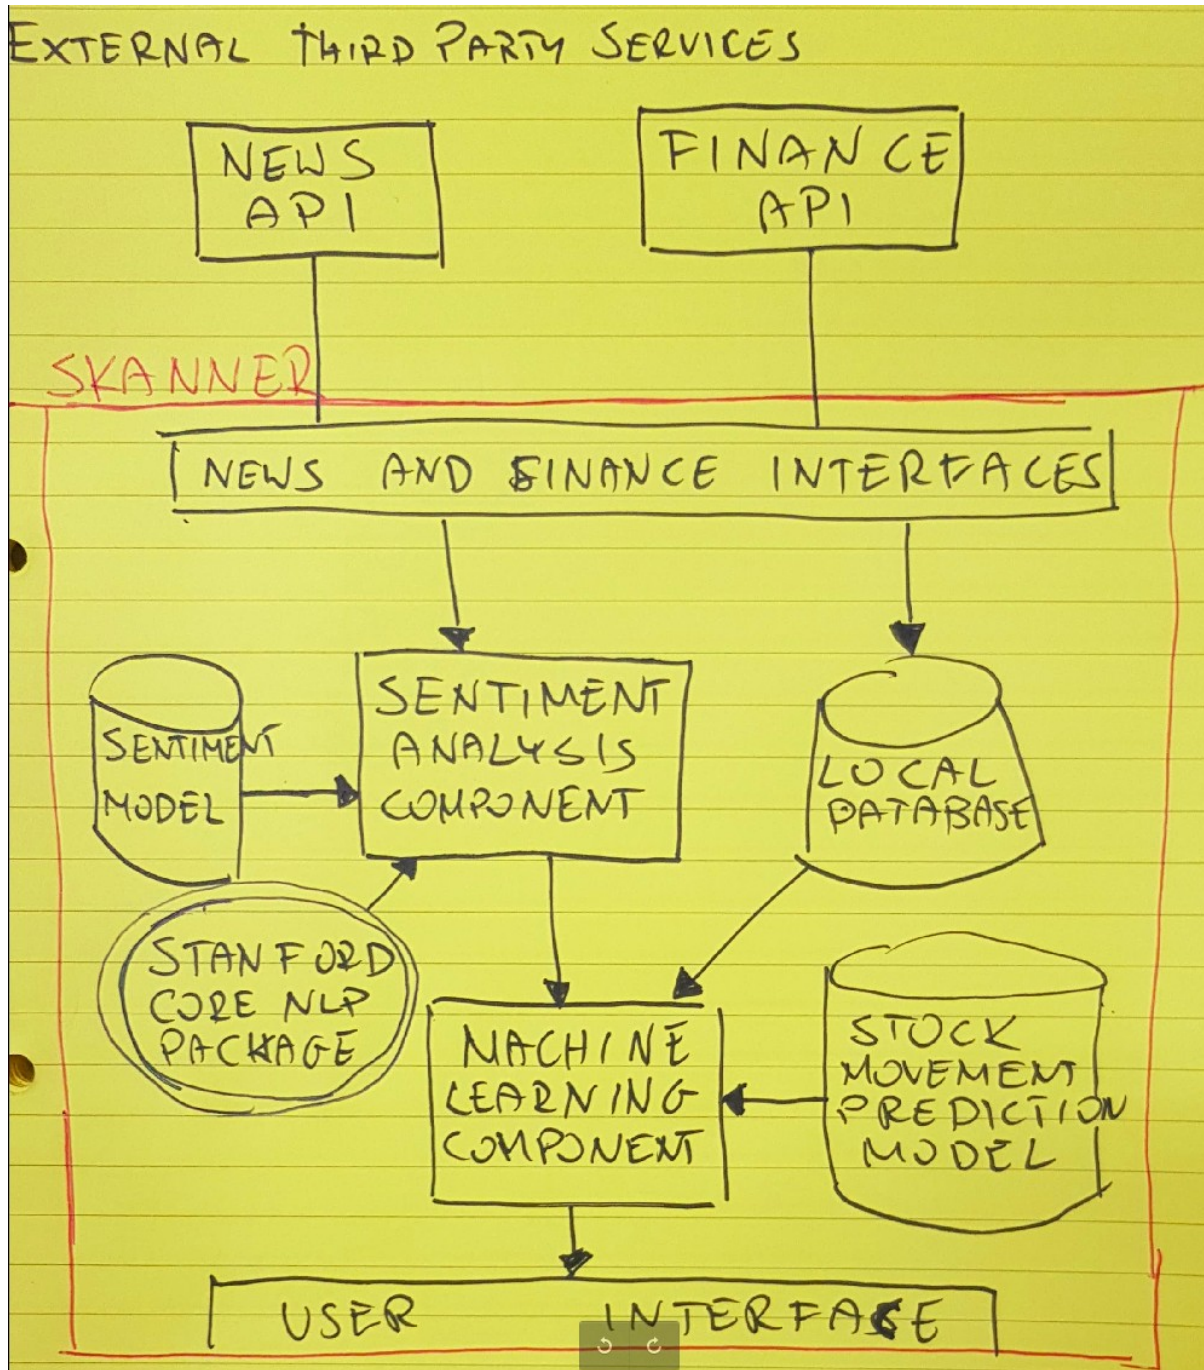 EXTERNAL THIRD PARTY SERVICES
NEWS
API
FINANCE
API
SKANNER
NEWS AND FINANCE INTERFACES
SENTIMENT
MODEL
SENTIMENT
ANALYSIS
COMPONENT
LOCAL
DATABASE
STANFORD
CORE NLP
PACKAGE
MACHINE
LEARNING
COMPONENT
STOCK
MOVEMENT
PREDICTION
MODEL
USER INTERFACE